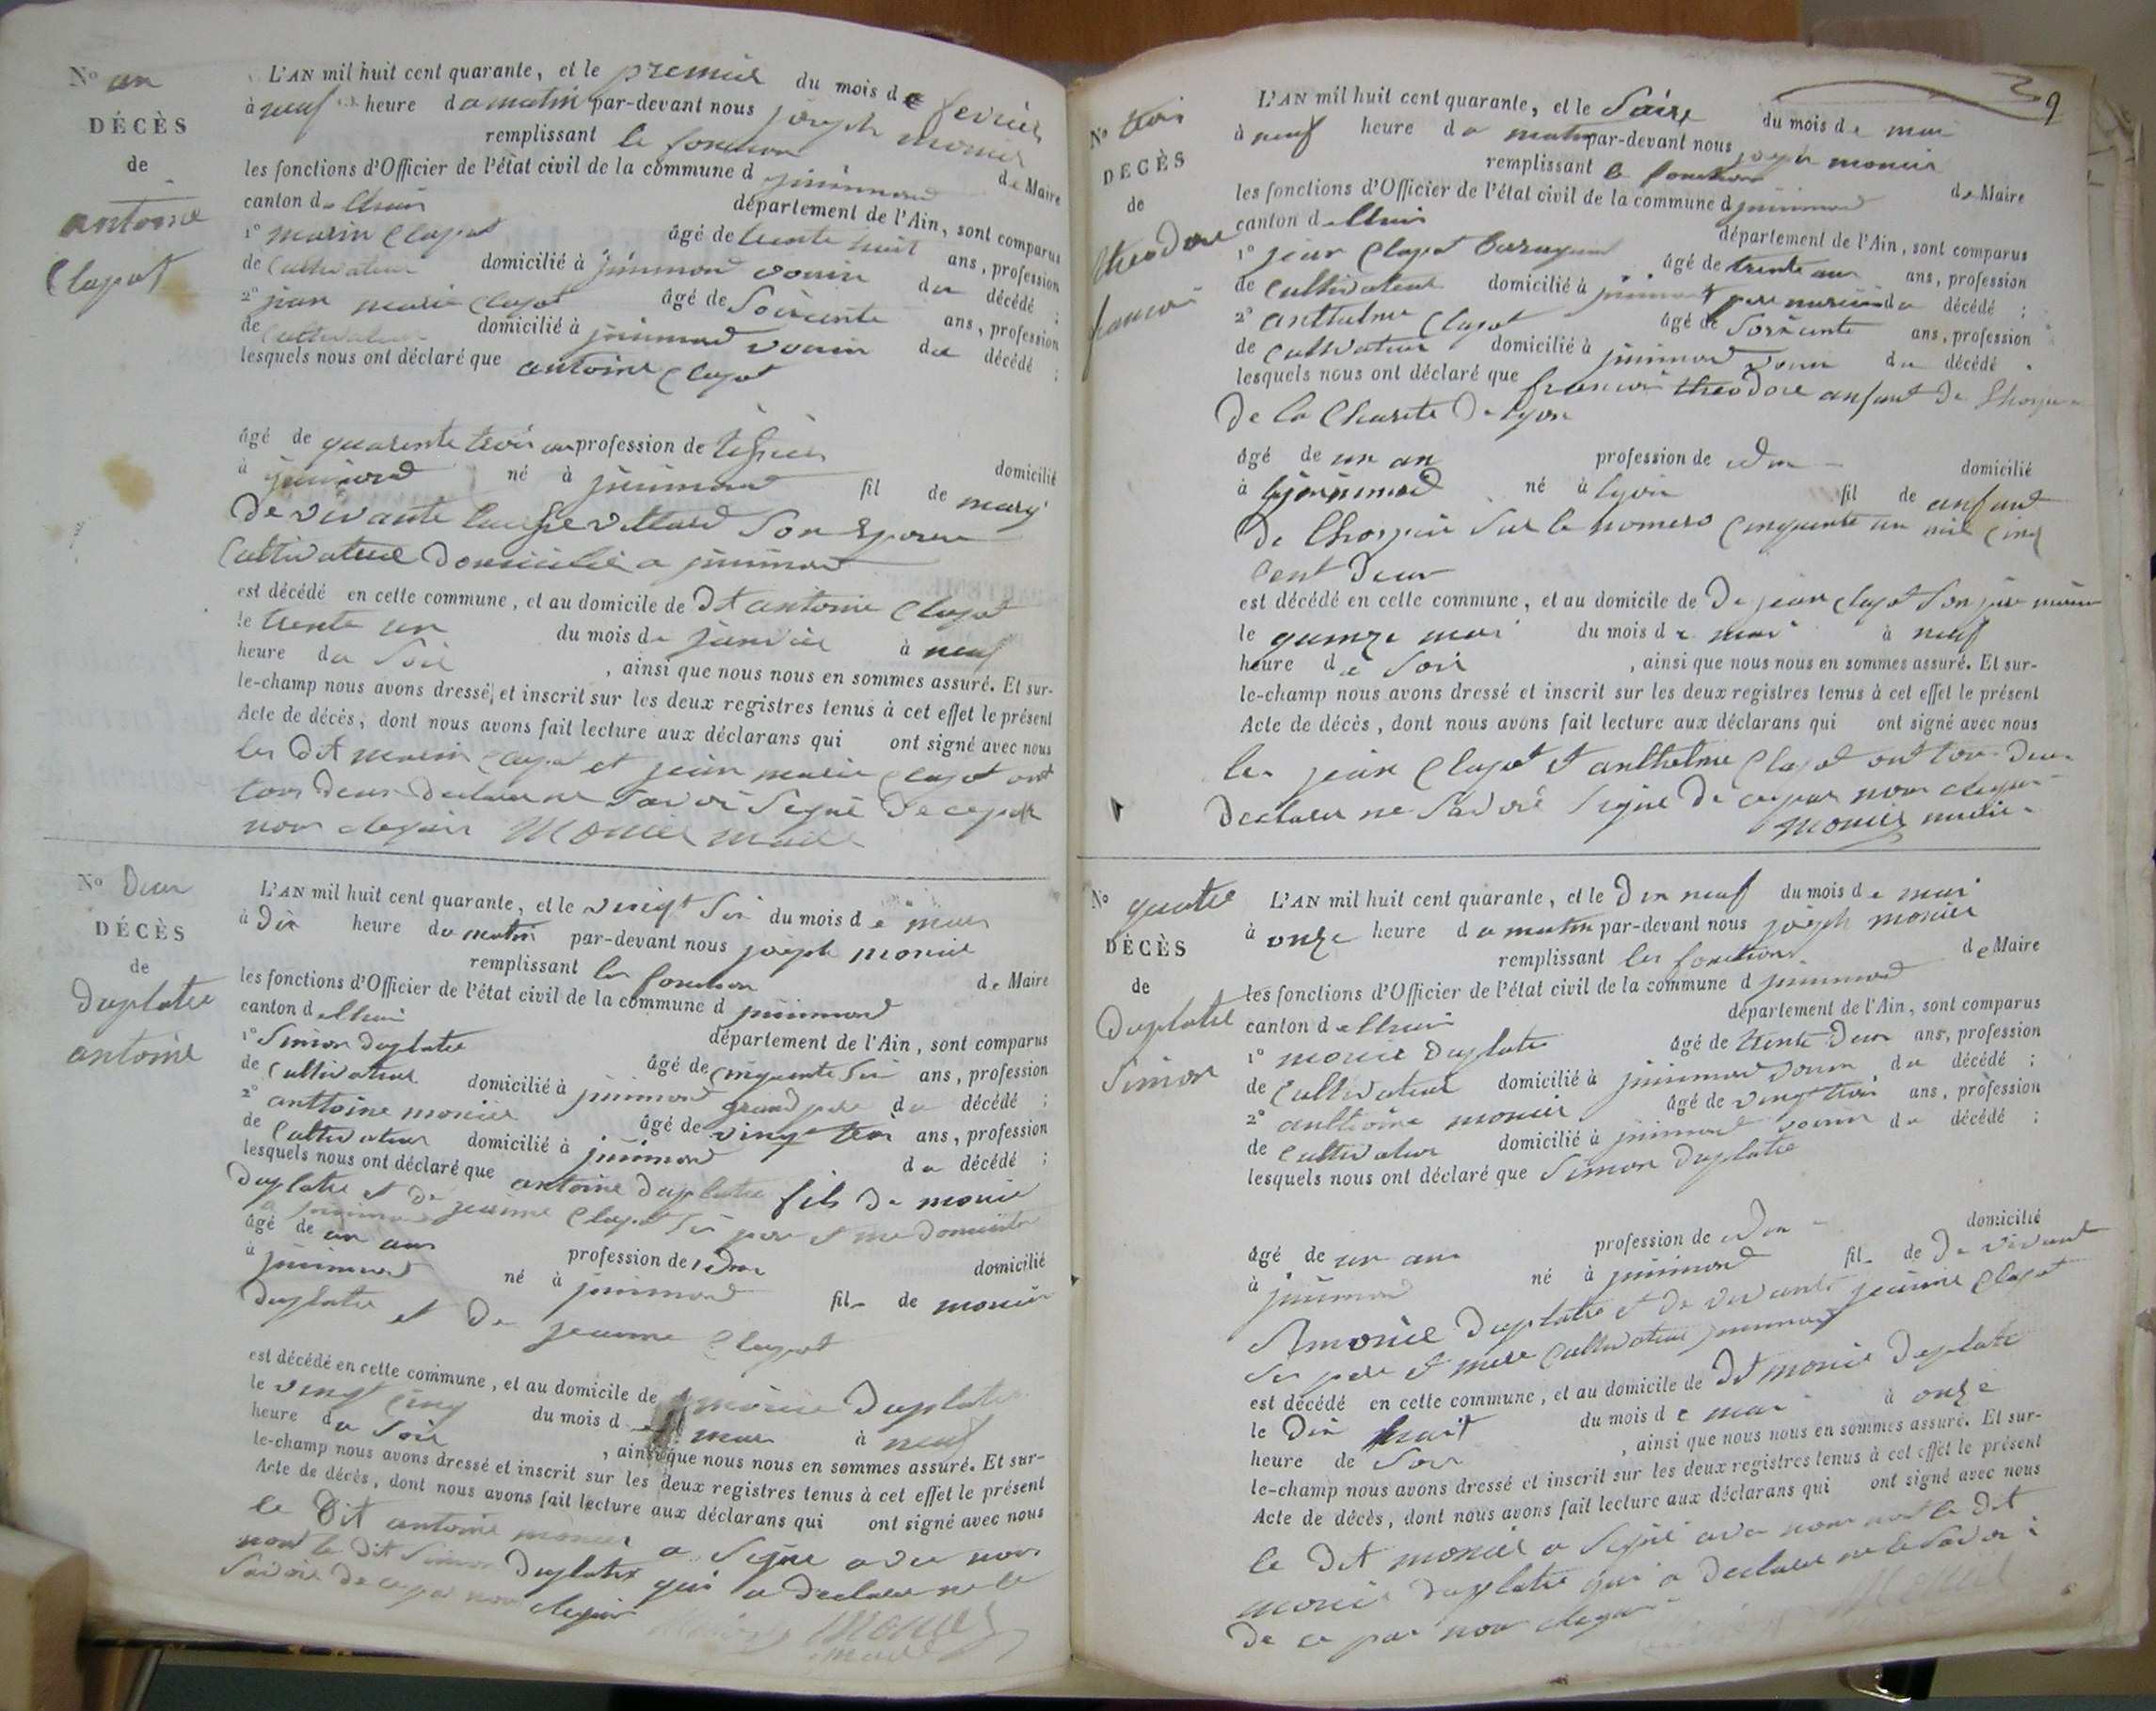 N° un
DÉCÈS
de
antoine
Clapot
L'AN mil huit cent quarante, et le premier du mois de fevrier
à neuf heure du matin par-devant nous joseph monier
remplissant le fonction de Maire
les fonctions d'Officier de l'état civil de la commune d
canton de lhuis département de l'Ain, sont comparus
1° marin Clapot âgé de trente huit ans, profession
de Cultivateur domicilié à voisin du décédé ;
2° jean marie Clapot âgé de Soixcente ans, profession
de Cultivateur domicilié à voisin du décédé ;
lesquels nous ont déclaré que antoine Clapot
âgé de quarente trois an profession de domicilié
à né à fil de
De vivante Son Epouse
Cultivateur Domicilié a
est décédé en cette commune, et au domicile de Dit antoine Clapot
le trente un du mois de janvier à neuf
heure du Soir , ainsi que nous nous en sommes assuré. Et sur-
le-champ nous avons dressé et inscrit sur les deux registres tenus à cet effet le présent
Acte de décès, dont nous avons fait lecture aux déclarans qui ont signé avec nous
les Dit marin Clapot et jean marie Clapot ont
tous Deux Declare ne Savoir Signe De ce
nous Monier maire
N° Deux
DÉCÈS
de
Duplatre
antoine
L'AN mil huit cent quarante, et le vingt Six du mois de mars
à Dix heure du matin par-devant nous joseph monier
remplissant les fonction de Maire
les fonctions d'Officier de l'état civil de la commune d
canton de lhuis département de l'Ain, sont comparus
1° Simon Duplatre âgé de cinquente Six ans, profession
de Cultivateur domicilié à grand pere du décédé ;
2° anttoine monier âgé de vingt trois ans, profession
de Cultivateur domicilié à du décédé ;
lesquels nous ont déclaré que antoine Duplatre fils de
Duplatre et De jeanne Clapot Ses pere et mere Domicilie
âgé de un ans profession de domicilié
à né à fils de
Duplatre et De jeanne Clapot
est décédé en cette commune, et au domicile de Duplatre
le vingt cinq du mois de mars à neuf
heure du Soir , ainsi que nous nous en sommes assuré. Et sur-
le-champ nous avons dressé et inscrit sur les deux registres tenus à cet effet le présent
Acte de décès, dont nous avons fait lecture aux déclarans qui ont signé avec nous
le Dit antoine monier a Signe avec nous
non le Dit Simon Duplatre qui a Declare ne le
Savoir De ce par nous
Monier
maire
2
N° trois
DÉCÈS
de
theodore
francois
L'AN mil huit cent quarante, et le Saize du mois de mai
à neuf heure du matin par-devant nous joseph monier
remplissant le fonction de Maire
les fonctions d'Officier de l'état civil de la commune d
canton de lhuis département de l'Ain, sont comparus
1° jean Clapot âgé de trente ans, profession
de Cultivateur domicilié à pere du décédé ;
2° anthelme Clapot âgé de Soixcente ans, profession
de Cultivateur domicilié à voisin du décédé
lesquels nous ont déclaré que francois theodore anfant De
De la Charite De lyon
âgé de un an profession de domicilié
à né à lyon fil de anfant
De Sur le nomero Cinquente un mil Cinq
Cent Deux
est décédé en cette commune, et au domicile de De jean Clapot Son
le quinze mai du mois de mai à neuf
heure de Soir , ainsi que nous nous en sommes assuré. Et sur-
le-champ nous avons dressé et inscrit sur les deux registres tenus à cet effet le présent
Acte de décès, dont nous avons fait lecture aux déclarans qui ont signé avec nous
les jean Clapot et anthelme Clapot ont tous Deux
Declare ne Savoir Signe De ce par nous
Monier maire
N° quatre
DÉCÈS
de
Duplatre
Simon
L'AN mil huit cent quarante, et le Dix neuf du mois de mai
à onze heure du matin par-devant nous joseph monier
remplissant les fonctions de Maire
les fonctions d'Officier de l'état civil de la commune d
canton de lhuis département de l'Ain, sont comparus
1° Duplatre âgé de trente Deux ans, profession
de Cultivateur domicilié à voisin du décédé ;
2° anthoine monier âgé de vingt trois ans, profession
de Cultivateur domicilié à voisin du décédé ;
lesquels nous ont déclaré que Simon Duplatre
âgé de un ans profession de domicilié
à né à fil de De vivant
Duplatre et De vivante jeanne Clapot
Ses pere et mere Cultivateur
est décédé en cette commune, et au domicile de Dit Duplatre
le Dix huit du mois de mai à onze
heure de Soir , ainsi que nous nous en sommes assuré. Et sur-
le-champ nous avons dressé et inscrit sur les deux registres tenus à cet effet le présent
Acte de décès, dont nous avons fait lecture aux déclarans qui ont signé avec nous
le Dit monier a Signe avec nous non le Dit
Duplatre qui a Declare ne le Savoir
De ce par nous